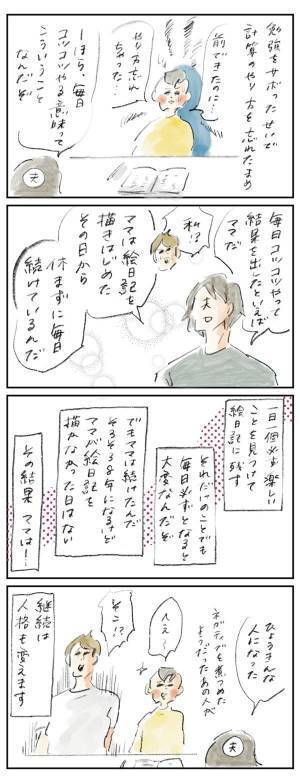 勉強をサボったせいで
計算のやり方を忘れたまめ
前できたのに…
やり方忘れ
ちゃった…
ーほら 毎日
コツコツやる意味って
こういうこと
なんだぞ
夫
毎日コツコツやって
結果を出したといえば
ママだ
私!?
夫
ママは絵日記を
描きはじめた
その日から
休まずに毎日
続けているんだ
一日一個必ず楽しい
ことを見つけて
絵日記に残す
それだけのことでも
毎日必ずとなると
大変なんだぞ
でもママは続けたんだ
そろそろ8年になるけど
ママが絵日記を
描かなかった日はない
その結果 ママは…
ひょうきんな
人になった
ネガティブを煮つめた
ようだったあの人が
夫
へえ〜
そこ!?
継続は
人格も変えます